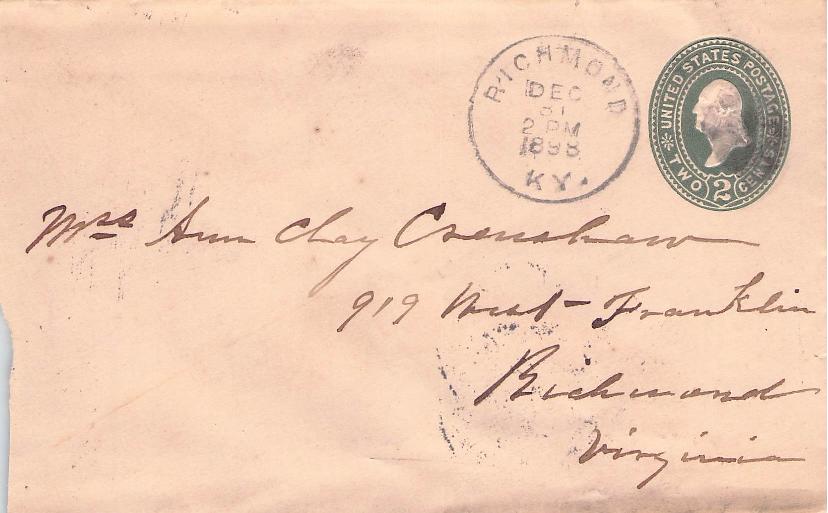 RICHMOND
DEC
31
2 PM
1898
KY.
UNITED STATES POSTAGE
TWO 2 CENTS
Mrs Ann Clay Crenshaw
919 West Franklin
Richmond
Virginia